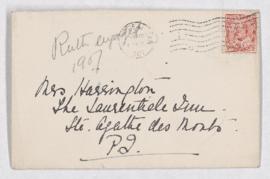 Ruth
1907
Mrs Harrington
The Laurentide Inn
Ste. Agathe des Monts
P.Q.